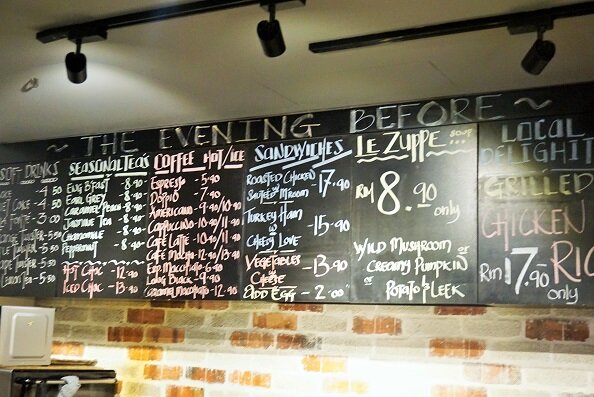 ~ THE EVENING BEFORE ~
SOFT DRINKS
4.50
4.50
3.00
5.50
5.50
5.50
5.50
5.50
SEASONAL TEAS
ENG B'FAST - 8.90
EARL GREY - 8.90
CARAMEL/PEACH - 8.90
JASMINE TEA - 8.90
CHAMOMILE - 8.90
PEPPERMINT - 8.90
HOT CHOC - 12.90
ICED CHOC - 13.90
COFFEE HOT/ICE
ESPRESSO - 5.90
DOPPIO - 7.90
AMERICANO - 9.90/10.90
CAPPUCCINO - 10.90/11.90
CAFE LATTE - 10.90/11.90
CAFE MOCHA - 12.90/13.90
ESP. MACCHIATO - 6.90
LONG BLACK - 7.90
CARAMEL MACCHIATO - 12.90
SANDWICHES
ROASTED CHICKEN - 17.90
SAUTEED M'ROOM
TURKEY HAM - 15.90
&
CHEESY LOVE
VEGETABLES - 13.90
&
CHEESE
ADD EGG - 2.00
LE ZUPPE SOUP...
RM 8.90 only
WILD MUSHROOM OR
CREAMY PUMPKIN
OR POTATO & LEEK
LOCAL
DELIGHT
GRILLED
CHICKEN
RM 17.90 only
RIC